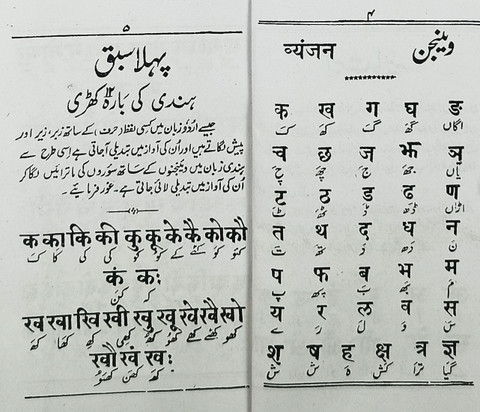 ۴
व्यंजन وینجن
क ख ग घ ङ
ک کھ گ گھ انگاں
च छ ज झ ञ
چ چھ ج جھ یاں
ट ठ ड ढ ण
ٹ ٹھ ڈ ڈھ اڑاں
त थ द ध न
ت تھ د دھ ن
प फ ब भ म
پ پھ ب بھ م
य र ल व स
ی ر ل و س
श ष ह क्ष त्र ज्ञ
ش ش ہ کش ترا گیا
۵
پہلا سبق
ہندی کی بارہ ۱۲ کھڑی
جیسے اُردو زبان میں کسی لفظ (حرف) کے ساتھ زبر، زیر اور
پیش لگاتے ہیں اور اُن کی آواز میں تبدیلی آجاتی ہے اِسی طرح سے
ہندی زبان میں وینجنوں کے ساتھ سُوروں کی ماترائیں لگا کر
اُن کی آواز میں تبدیلی لائی جاتی ہے۔ غور فرمائیے۔
क का कि की कु कू के कै को कौ
ک کا کِ کی کُ کو کے کَے کو کَو
कं कः
کن کہ
ख खा खि खी खु खू खे खै खो
کھ کھا کھِ کھی کھُ کھو کھے کھَے کھو
खौ खं खः
کھَو کھن کھہ